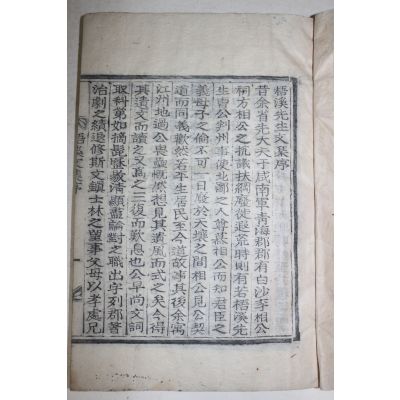 梧溪先生文集序
昔余省先大夫于咸南軍青海郡郡有白沙李相公
祠方相公之抗議扶綱廢徙遐荒時則有若梧溪先
生實公判州事使北鄙之人 相公而知君臣之
義母子之倫不可一日廢於天壤之間相公見公契
道而同義歡然若平生居民至今道故事其後余寓
江州地過公喪廬慨然想見其遺風而式之矣今得
其遺文而讀之又爲之三復而歎息也公早尚文詞
取科第如摘髭歷敭清顯盡論對之職出宰列郡著
治劇之績退修斯文鎭士林之望事父母以孝處兄
梧溪文集序